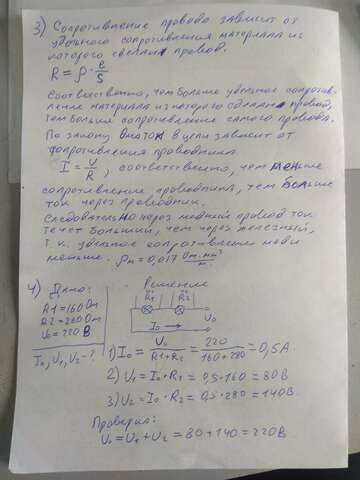 3) Сопротивление провода зависит от
удельного сопротивления материала из
которого сделан провод.
R = ρ · e/S
Соответственно, чем больше удельное сопротив-
ление материала из которого сделан провод,
тем больше сопротивление самого провода.
По закону Ома ток в цепи зависит от
сопротивления проводника
I = U/R, соответственно, чем меньше
сопротивление проводника, тем больше
ток через проводник.
Следовательно через медный провод ток
течет больший, чем через железный,
т.к. удельное сопротивление меди
меньше. ρм = 0,017 Ом·мм²/м
4) Дано:
R1 = 160 Ом
R2 = 280 Ом
U0 = 220 В
I0, U1, U2 - ?
Решение
R1 R2
I0 U0
1) I0 = U0/(R1+R2) = 220/(160+280) = 0,5 А.
2) U1 = I0 · R1 = 0,5 · 160 = 80 В
3) U2 = I0 · R2 = 0,5 · 280 = 140 В.
Проверка:
U0 = U1 + U2 = 80 + 140 = 220 В